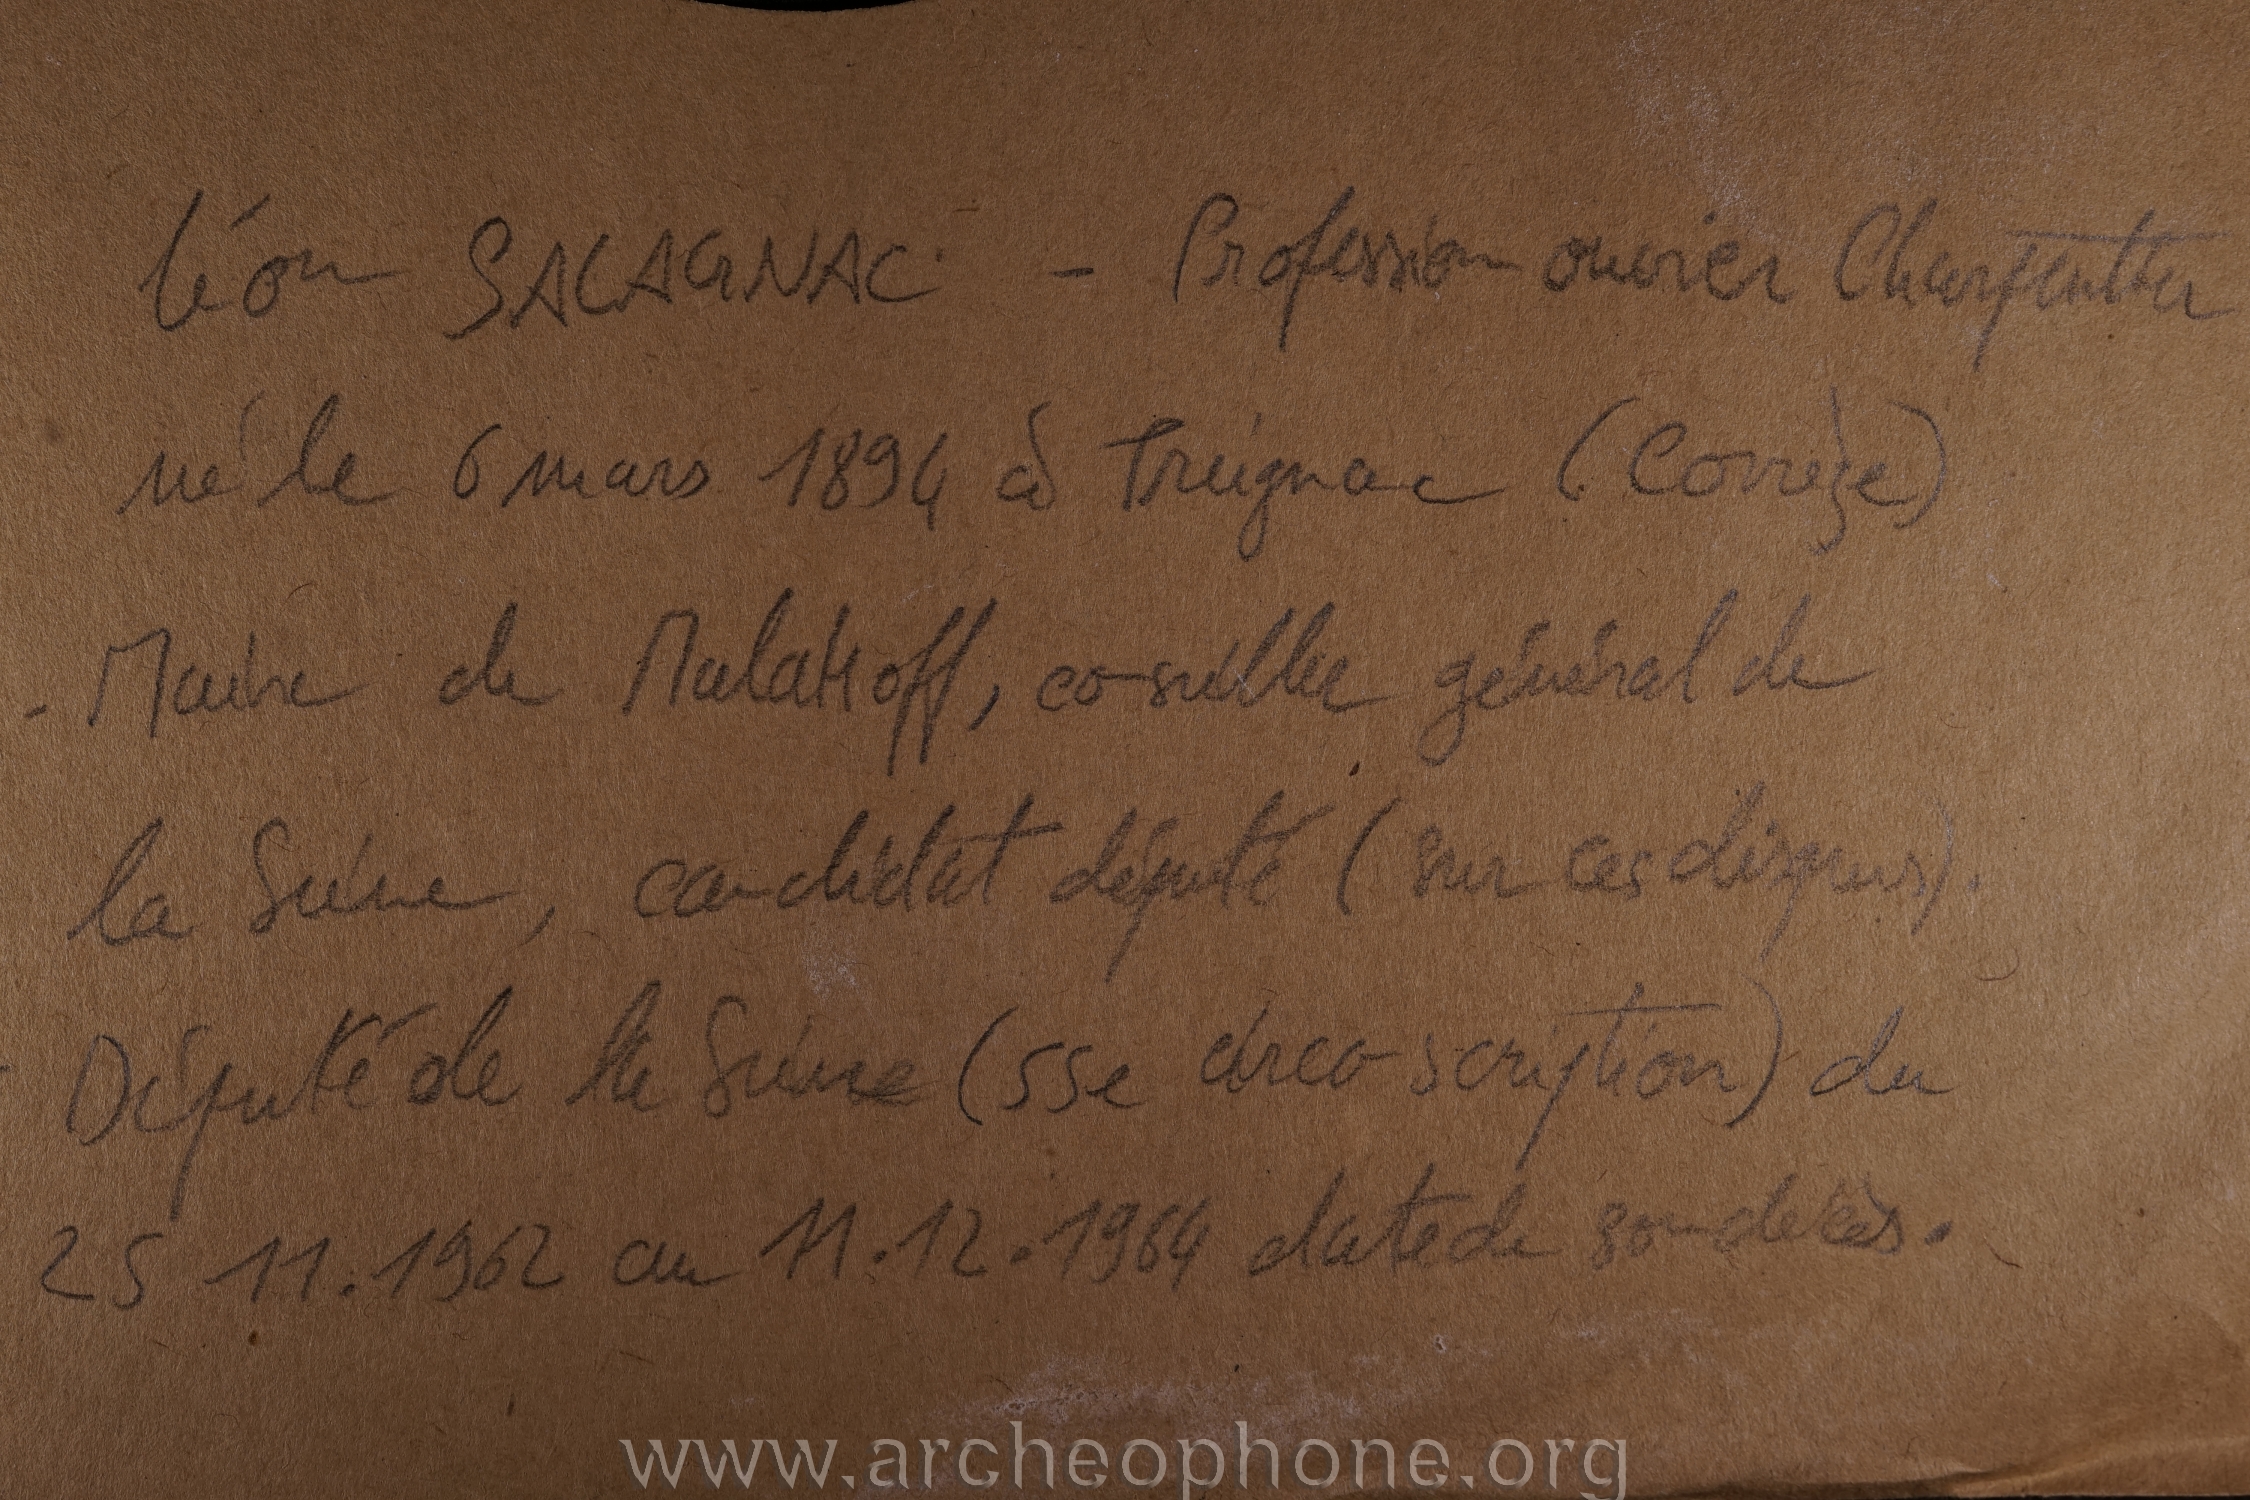 Léon SALAGNAC - Profession ouvrier Charpentier
né le 6 mars 1894 à Treignac (Corrèze)
- Maire de Malakoff, conseiller général de
la Seine, candidat député (sur ces disques).
- Député de la Seine (55e circonscription) du
25 11.1962 au 11.12.1964 date de son décès.
www.archeophone.org